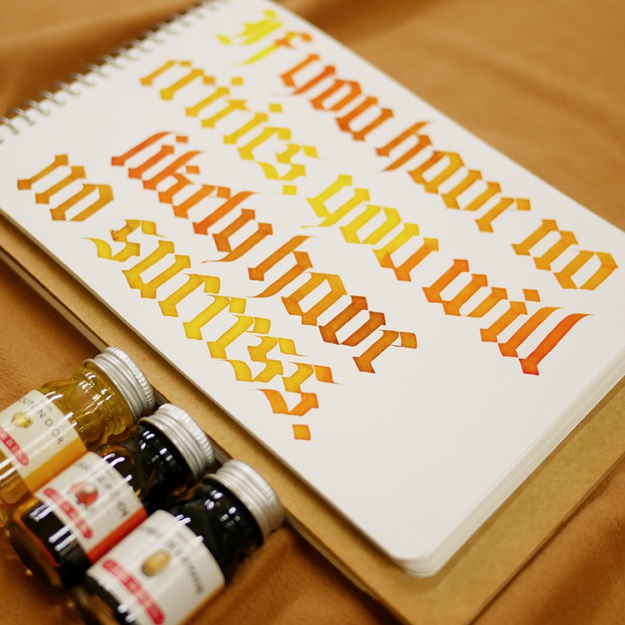 If you have no
critics, you will
likely have
no success.